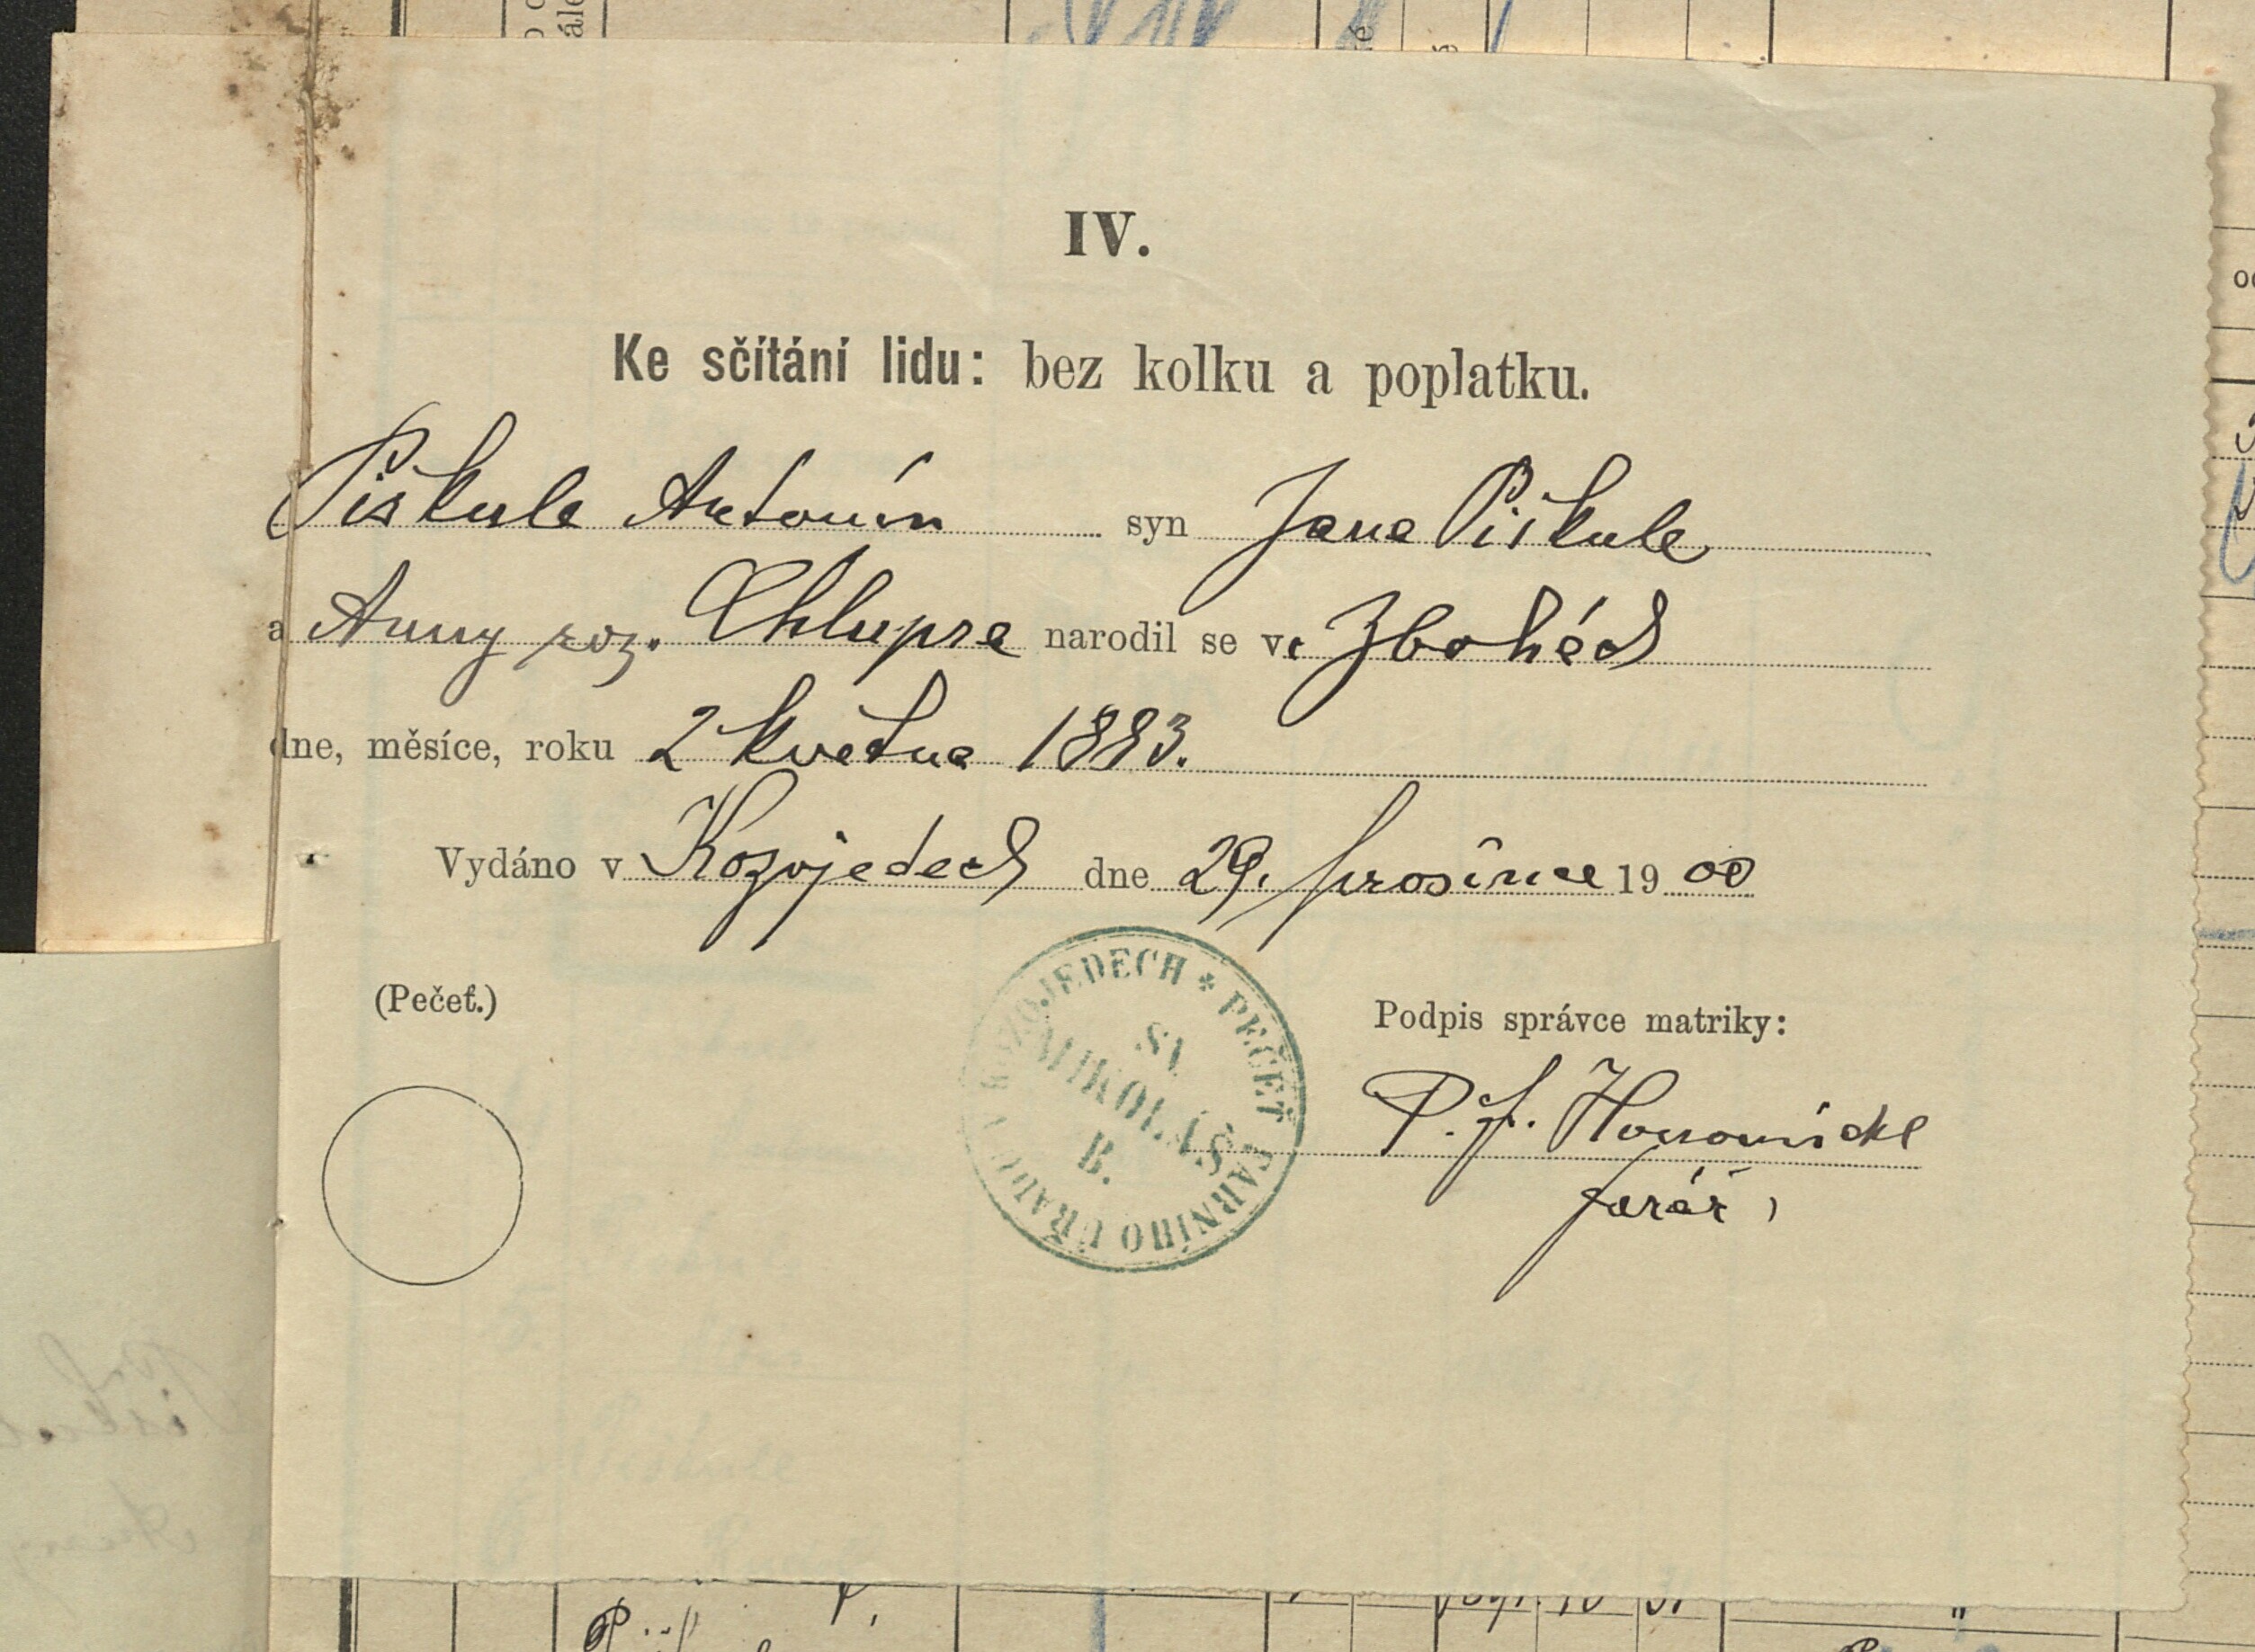 IV.
Ke sčítání lidu: bez kolku a poplatku.
Piskule Antonín syn Jana Piskule
a Anny roz. Chlupsa narodil se ve Zbohách
dne, měsíce, roku 2 května 1883.
Vydáno v Kozojedech dne 29. prosince 1900
(Pečeť.)
PEČEŤ FARNÍHO ÚŘADU V KOZOJEDECH *
SV.
MIKOLÁŠ
B.
Podpis správce matriky:
P. J.
farář